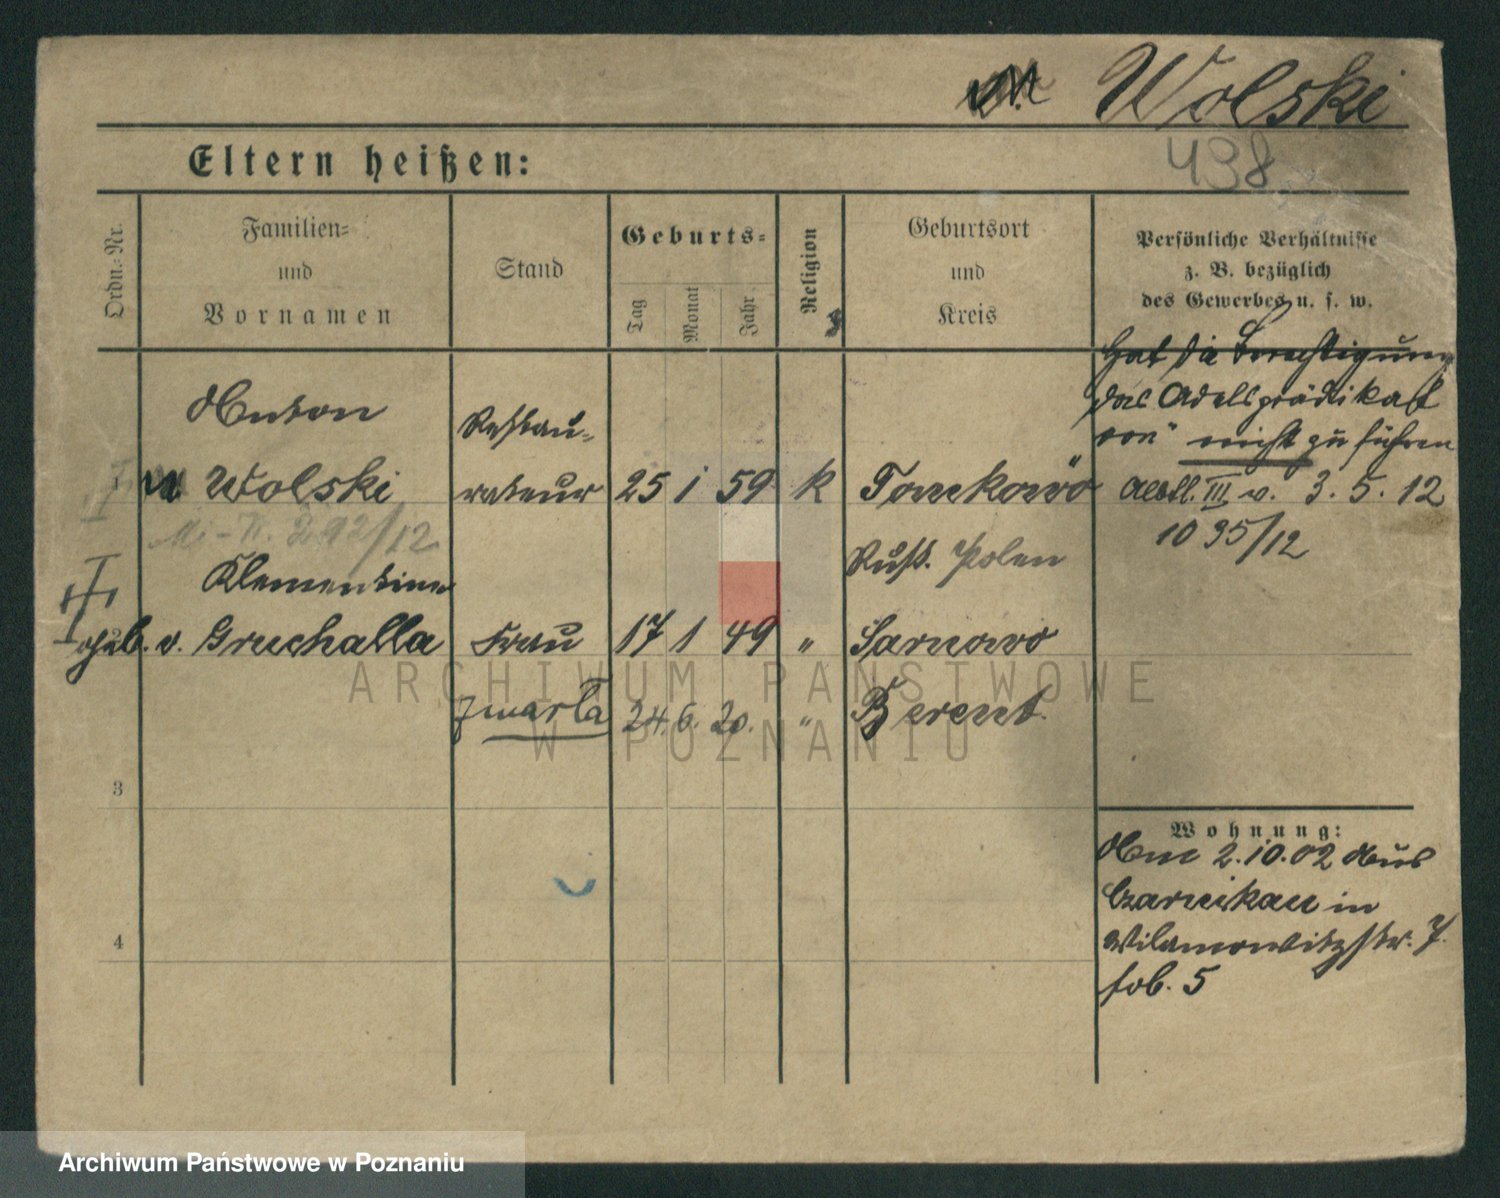 Wolski
Eltern heißen:
498
Ordn.-Nr.
Familien-
und
Vornamen
Stand
Geburts-
Tag
Monat
Jahr
Religion
Geburtsort
und
Kreis
Persönliche Verhältnisse
z. B. bezüglich
des Gewerbes u. s. w.
Hat die Berechtigung
das Adelsprädikat
von" nicht zu führen
III v. 3.5.12
1035/12
Anton
Restau-
1 Wolski rateur 25 1 59 k
292/12
Russ. Polen
Klementine
geb. v. Gruchalla Frau 17 1 49 " Sarnowo
zmarła 24. 6. 20. " Berent.
3
4
Wohnung:
Am 2.10.02 aus
Czarnikau in
Wilamowitzstr. 7.
ARCHIWUM PAŃSTWOWE
W POZNANIU
Archiwum Państwowe w Poznaniu